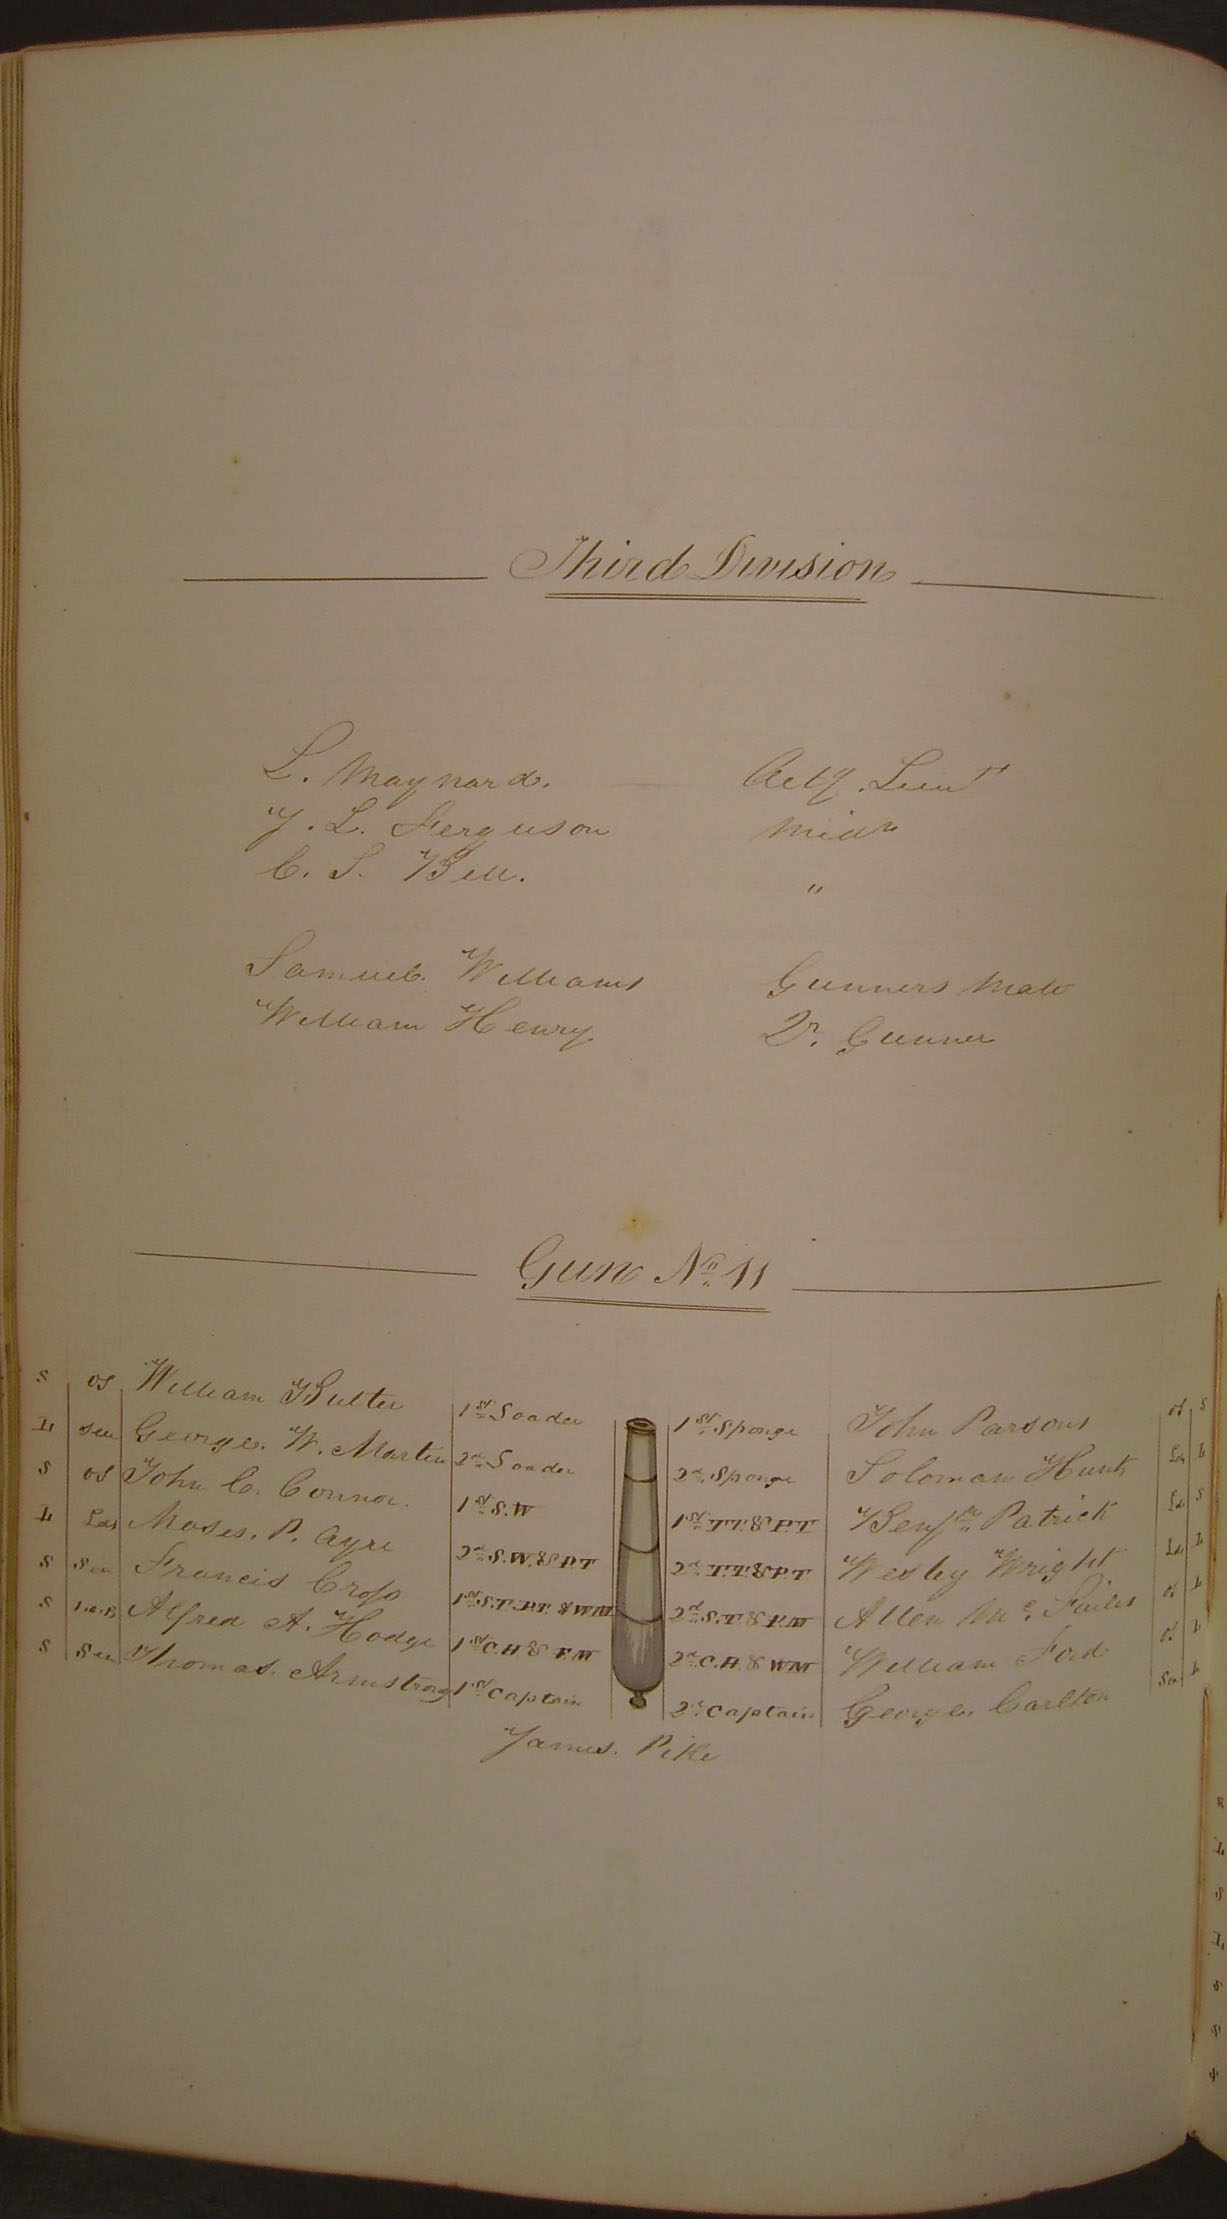 Third Division
L. Maynard. Actg. Lieut
J. L. Ferguson Midn
C. S. Bell. "
Samuel Williams Gunners Mate
William Henry Qr. Gunner
Gun No. 11
S os William Butler 1st Loader 1st Sponge John Parsons os S
L Sea George. W. Martin 2nd Loader 2nd Sponge Soloman Hunt Lds L
S os John C. Connor. 1st S.W 1st T.T. & P.T Benjn Patrick Lds S
L Lds Moses. P. Ayre 2nd S.W. & P.T 2nd T.T. & P.T Wesley Wright Lds L
S Sea Francis Cross 1st S.T. P.T. & W.M 2nd S.T. & F.M Allen Mc. os L
S Alfred A. Hodge 1st C.H & F.M 2nd C.H. & W.M William Ford os L
S Sea Thomas. Armstrong 1st Captain 2nd Captain George Carlton Sea L
James. Pike